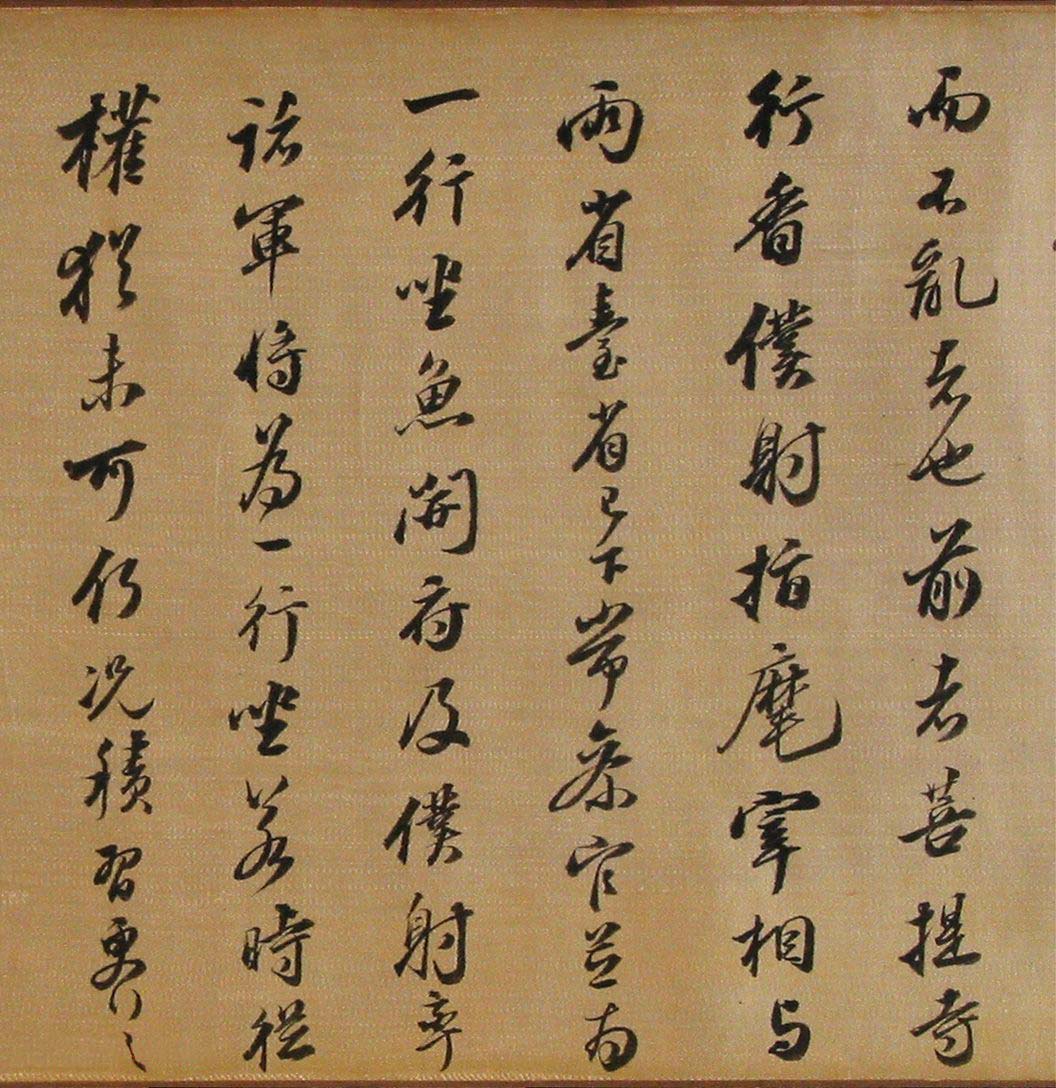 而不亂者也前者菩提寺
行香僕射指麾宰相与
兩省臺省已下常參官並為
一行坐魚開府及僕射率
諸軍將為一行坐若時從
權猶未可何況積習更行之